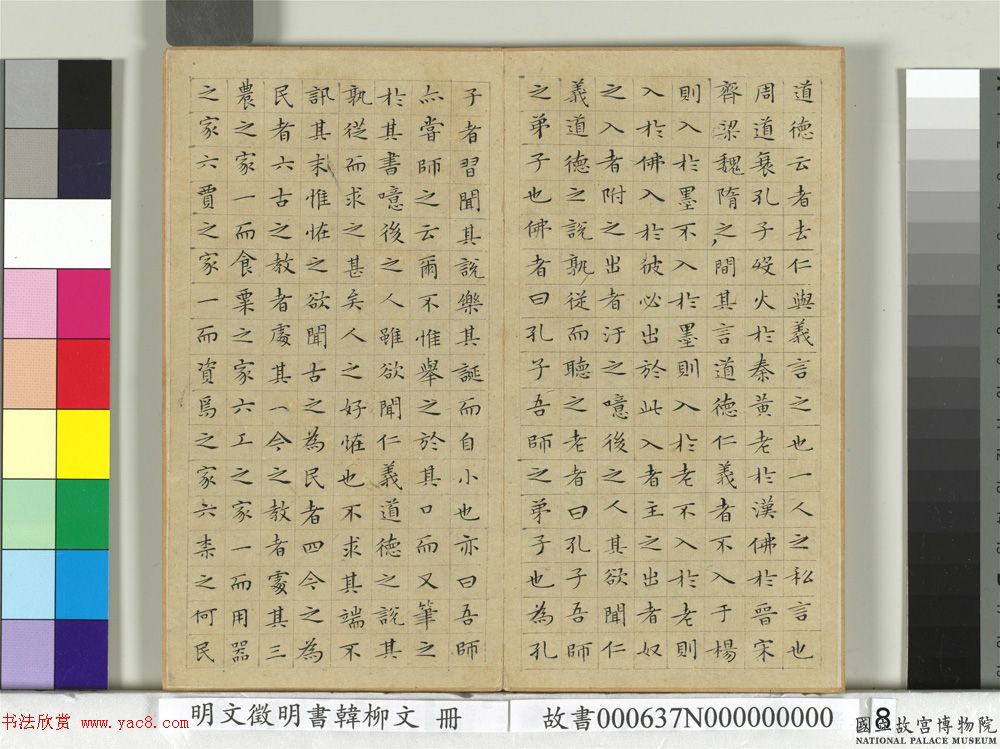 道德云者去仁與義言之也一人之私言也
周道衰孔子歿火於秦黃老於漢佛於晉宋
齊梁魏隋之間其言道德仁義者不入于楊
則入於墨不入於墨則入於老不入於老則
入於佛入於彼必出於此入者主之出者奴
之入者附之出者汙之噫後之人其欲聞仁
義道德之說孰從而聽之老者曰孔子吾師
之弟子也佛者曰孔子吾師之弟子也為孔
子者習聞其說樂其誕而自小也亦曰吾師
亦嘗師之云爾不惟舉之於其口而又筆之
於其書噫後之人雖欲聞仁義道德之說其
孰從而求之甚矣人之好恠也不求其端不
訊其末惟恠之欲聞古之為民者四今之為
民者六古之教者處其一今之教者處其三
農之家一而食粟之家六工之家一而用器
之家六賈之家一而資焉之家六柰之何民
明文徵明書韓柳文 冊
故書000637N000000000
8
書法欣賞 www.yac8.com
國立故宮博物院
NATIONAL PALACE MUSEUM